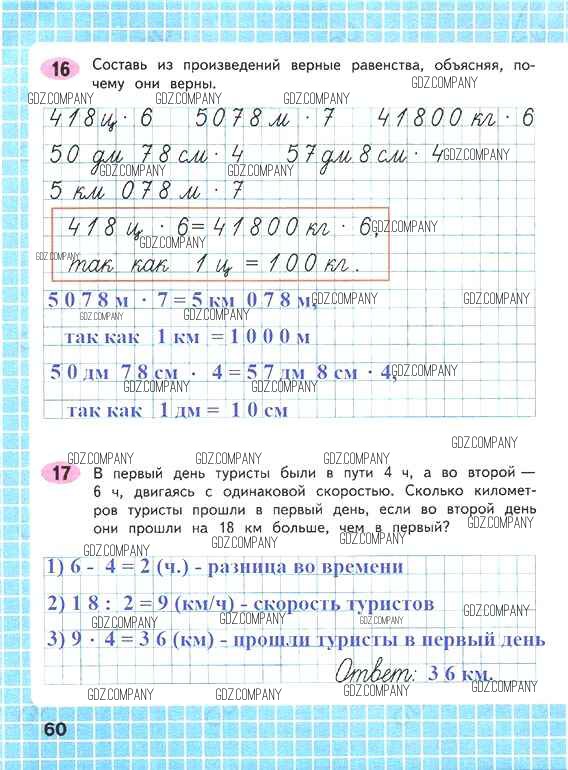 16 Составь из произведений верные равенства, объясняя, по-
чему они верны.
GDZ.COMPANY GDZ.COMPANY GDZ.COMPANY GDZ.COMPANY
418 ц · 6 5078 м · 7 41800 кг · 6
50 дм 78 см · 4 57 дм 8 см · 4
GDZ.COMPANY GDZ.COMPANY GDZ.COMPANY
5 км 078 м · 7
418 ц · 6 = 41800 кг · 6,
GDZ.COMPANY GDZ.COMPANY
так как 1 ц = 100 кг.
GDZ.COMPANY
5078 м · 7 = 5 км 078 м,
GDZ.COMPANY GDZ.COMPANY GDZ.COMPANY
так как 1 км = 1000 м
50 дм 78 см · 4 = 57 дм 8 см · 4,
GDZ.COMPANY GDZ.COMPANY GDZ.COMPANY
так как 1 дм = 10 см
GDZ.COMPANY
GDZ.COMPANY GDZ.COMPANY GDZ.COMPANY
17 В первый день туристы были в пути 4 ч, а во второй —
6 ч, двигаясь с одинаковой скоростью. Сколько километ-
ров туристы прошли в первый день, если во второй день
они прошли на 18 км больше, чем в первый?
GDZ.COMPANY GDZ.COMPANY GDZ.COMPANY GDZ.COMPANY
1) 6 - 4 = 2 (ч.) - разница во времени
2) 18 : 2 = 9 (км/ч) - скорость туристов
GDZ.COMPANY GDZ.COMPANY GDZ.COMPANY GDZ.COMPANY
3) 9 · 4 = 36 (км) - прошли туристы в первый день
Ответ: 36 км.
GDZ.COMPANY GDZ.COMPANY GDZ.COMPANY GDZ.COMPANY
60